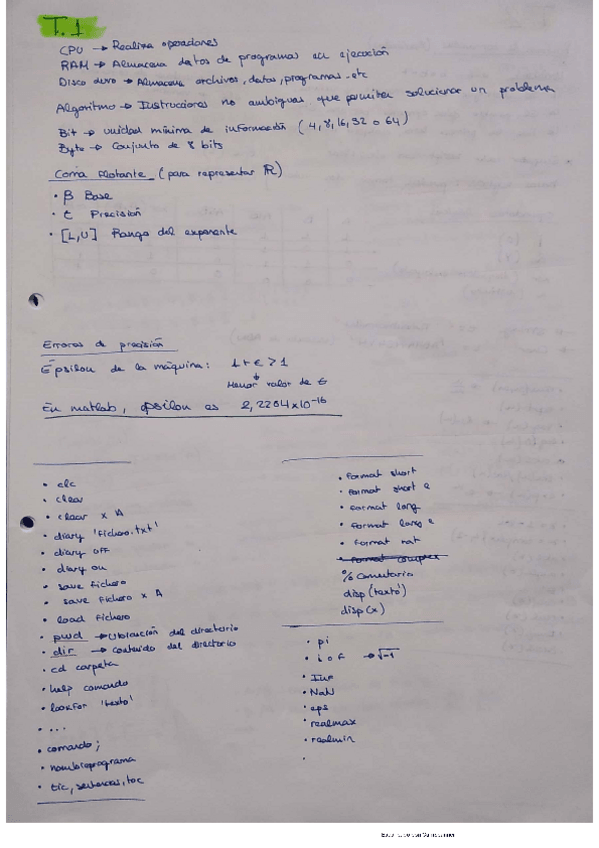 T.1
CPU → Realiza operaciones
RAM → Almacena datos de programas en ejecución
Disco duro → Almacena archivos, datos, programas...etc
Algoritmo → Instrucciones no ambiguas que permiten solucionar un problema
Bit → unidad mínima de información (4, 8, 16, 32 o 64)
Byte → Conjunto de 8 bits
Coma flotante (para representar ℝ)
• β Base
• t Precisión
• [L,U] Rango del exponente
Errores de precisión
Épsilon de la máquina: 1 + ϵ > 1
↓
Menor valor de ϵ
En matlab, epsilon es 2,2204 × 10⁻¹⁶
• clc
• clear
• clear x A
• diary 'fichero.txt'
• diary off
• diary on
• save fichero
• save fichero x A
• load fichero
• pwd → Ubicación del directorio
• dir → contenido del directorio
• cd carpeta
• help comando
• lookfor 'texto'
• ...
• comando;
• nombreprograma
• tic, sentencias, toc
• format short
• format short e
• format long
• format long e
• format rat
• format complex
% comentario
disp('texto')
disp(x)
• pi
• i o j → √-1
• Inf
• NaN
• eps
• realmax
• realmin